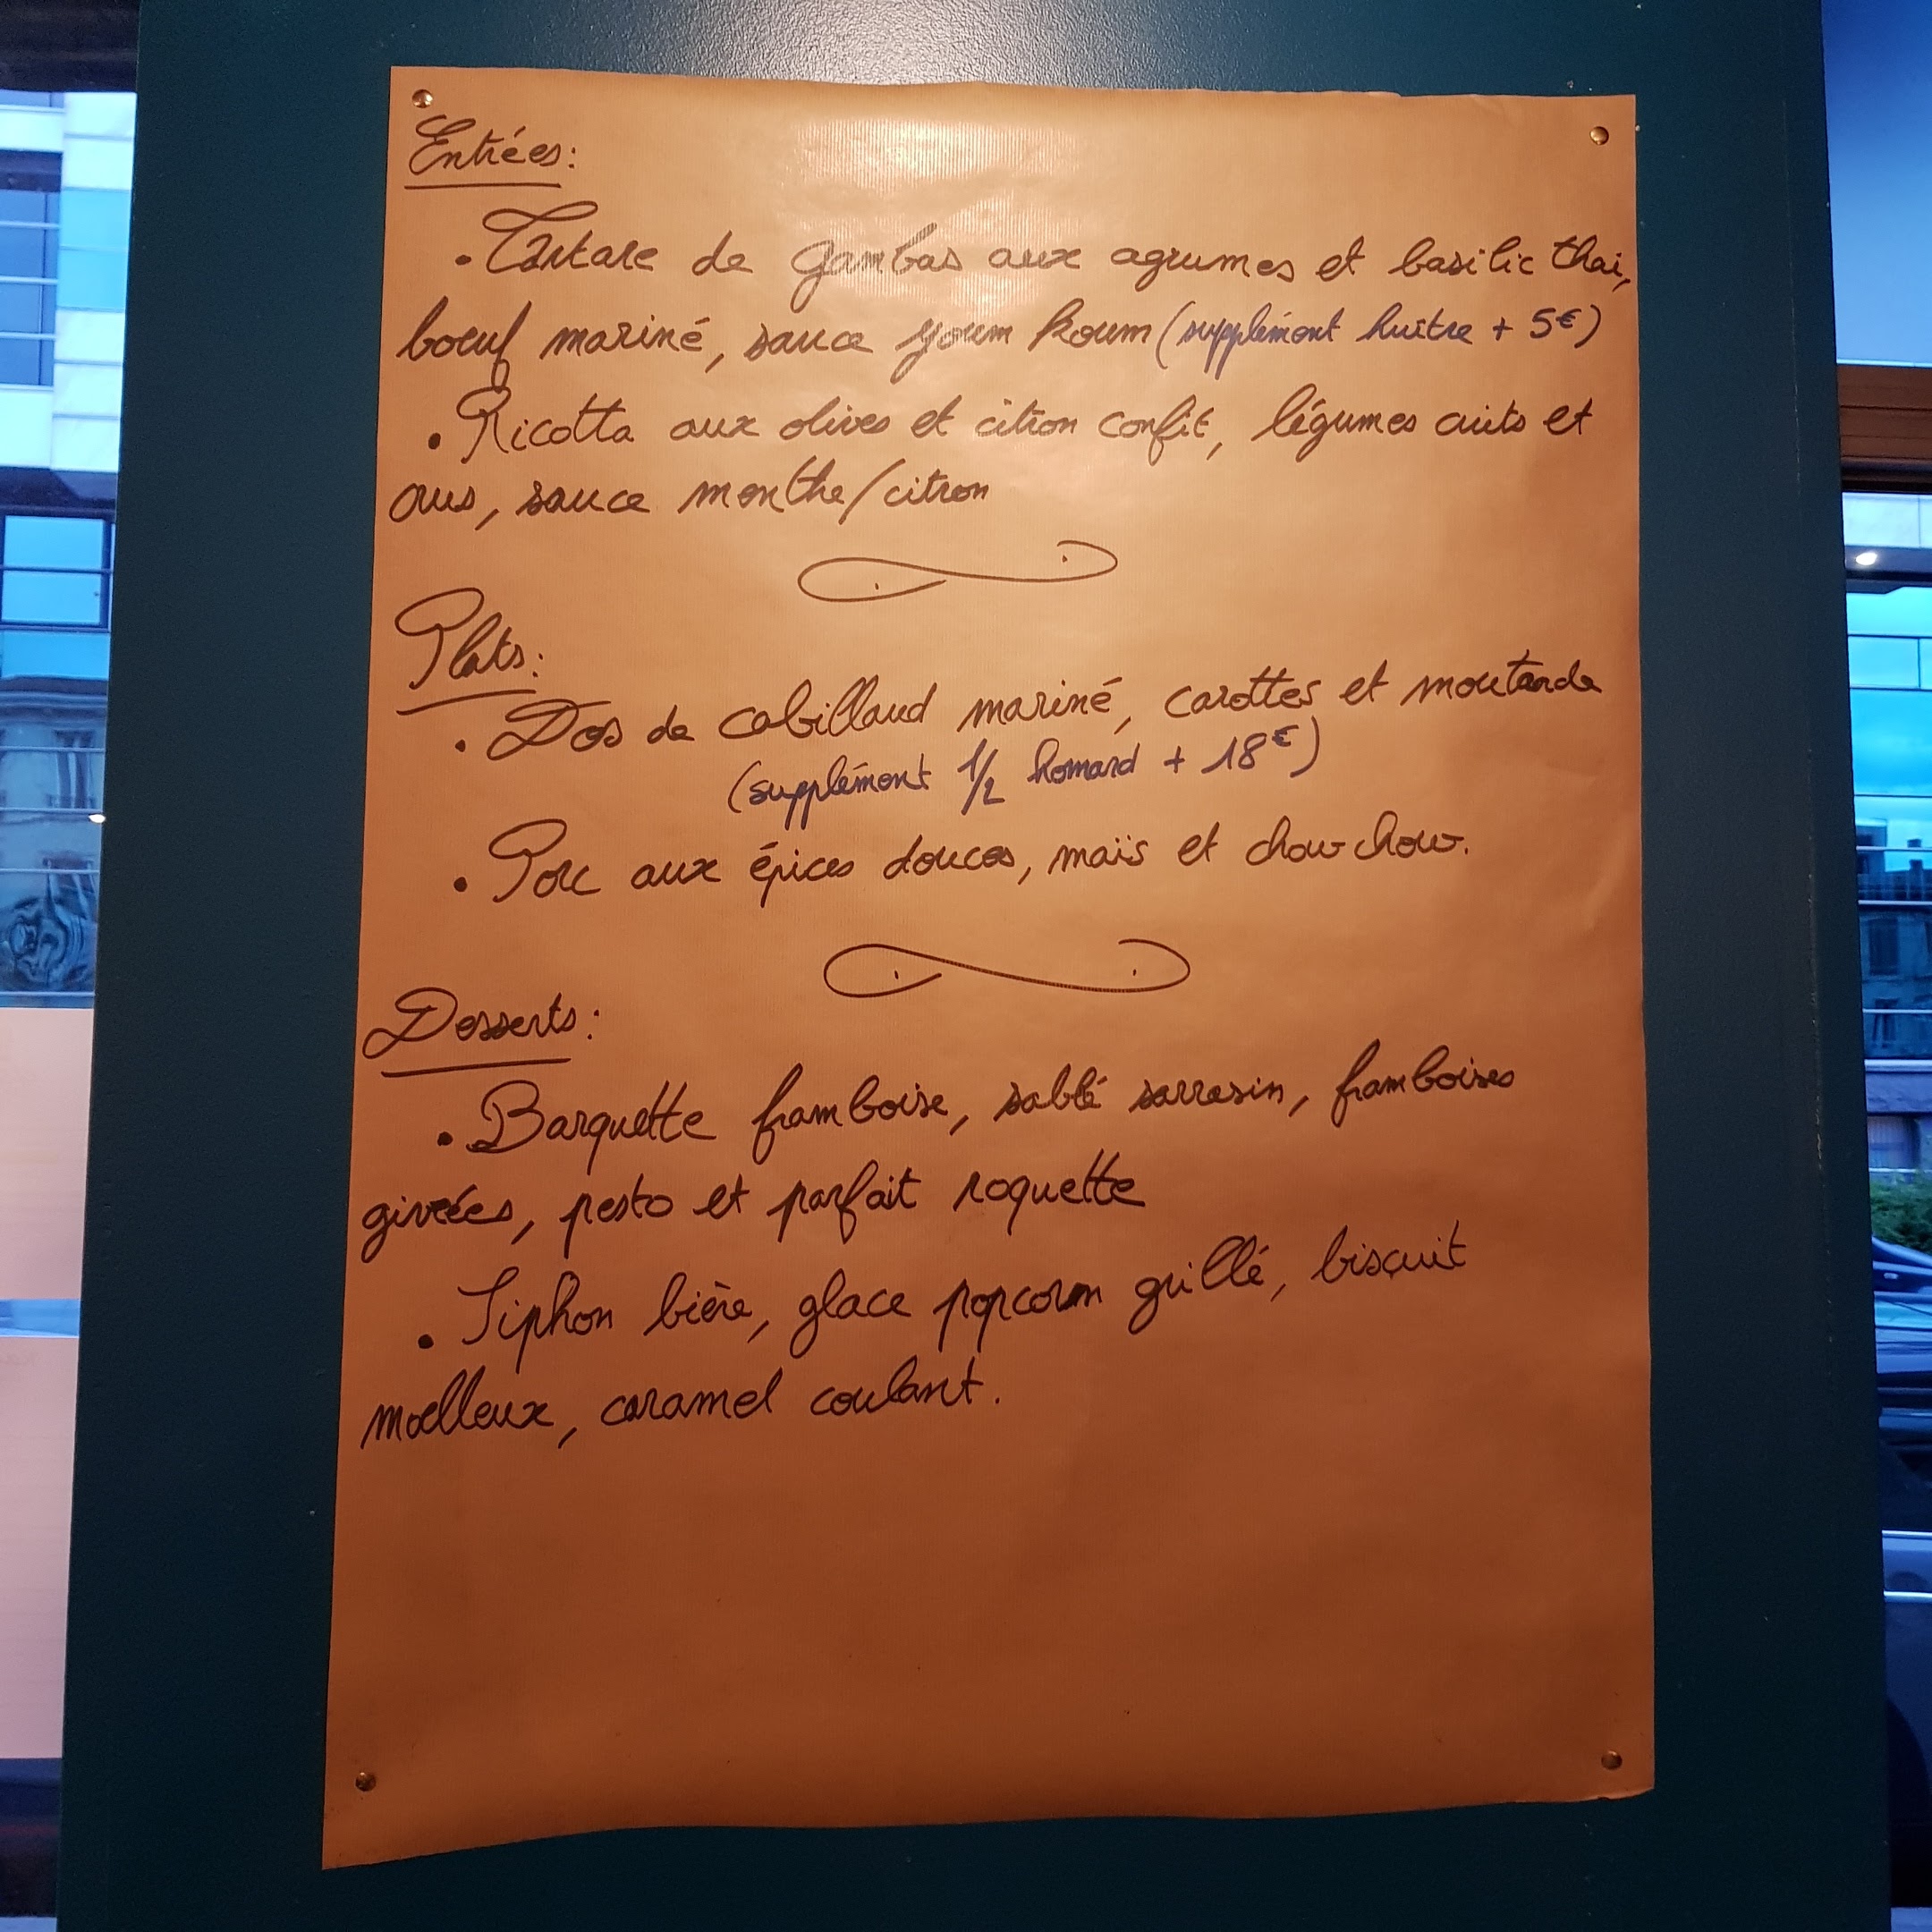 Entrées:
• Tartare de gambas aux agrumes et basilic thai,
boeuf mariné, sauce youm koum (supplément huître + 5€)
• Ricotta aux olives et citron confit, légumes cuits et
crus, sauce menthe/citron
Plats:
• Dos de cabillaud mariné, carottes et moutarde
(supplément 1/2 homard + 18€)
• Porc aux épices douces, maïs et chow chow.
Desserts:
• Barquette framboise, sablé sarrasin, framboises
givrées, pesto et parfait roquette
• Siphon bière, glace popcorn grillé, biscuit
moelleux, caramel coulant.